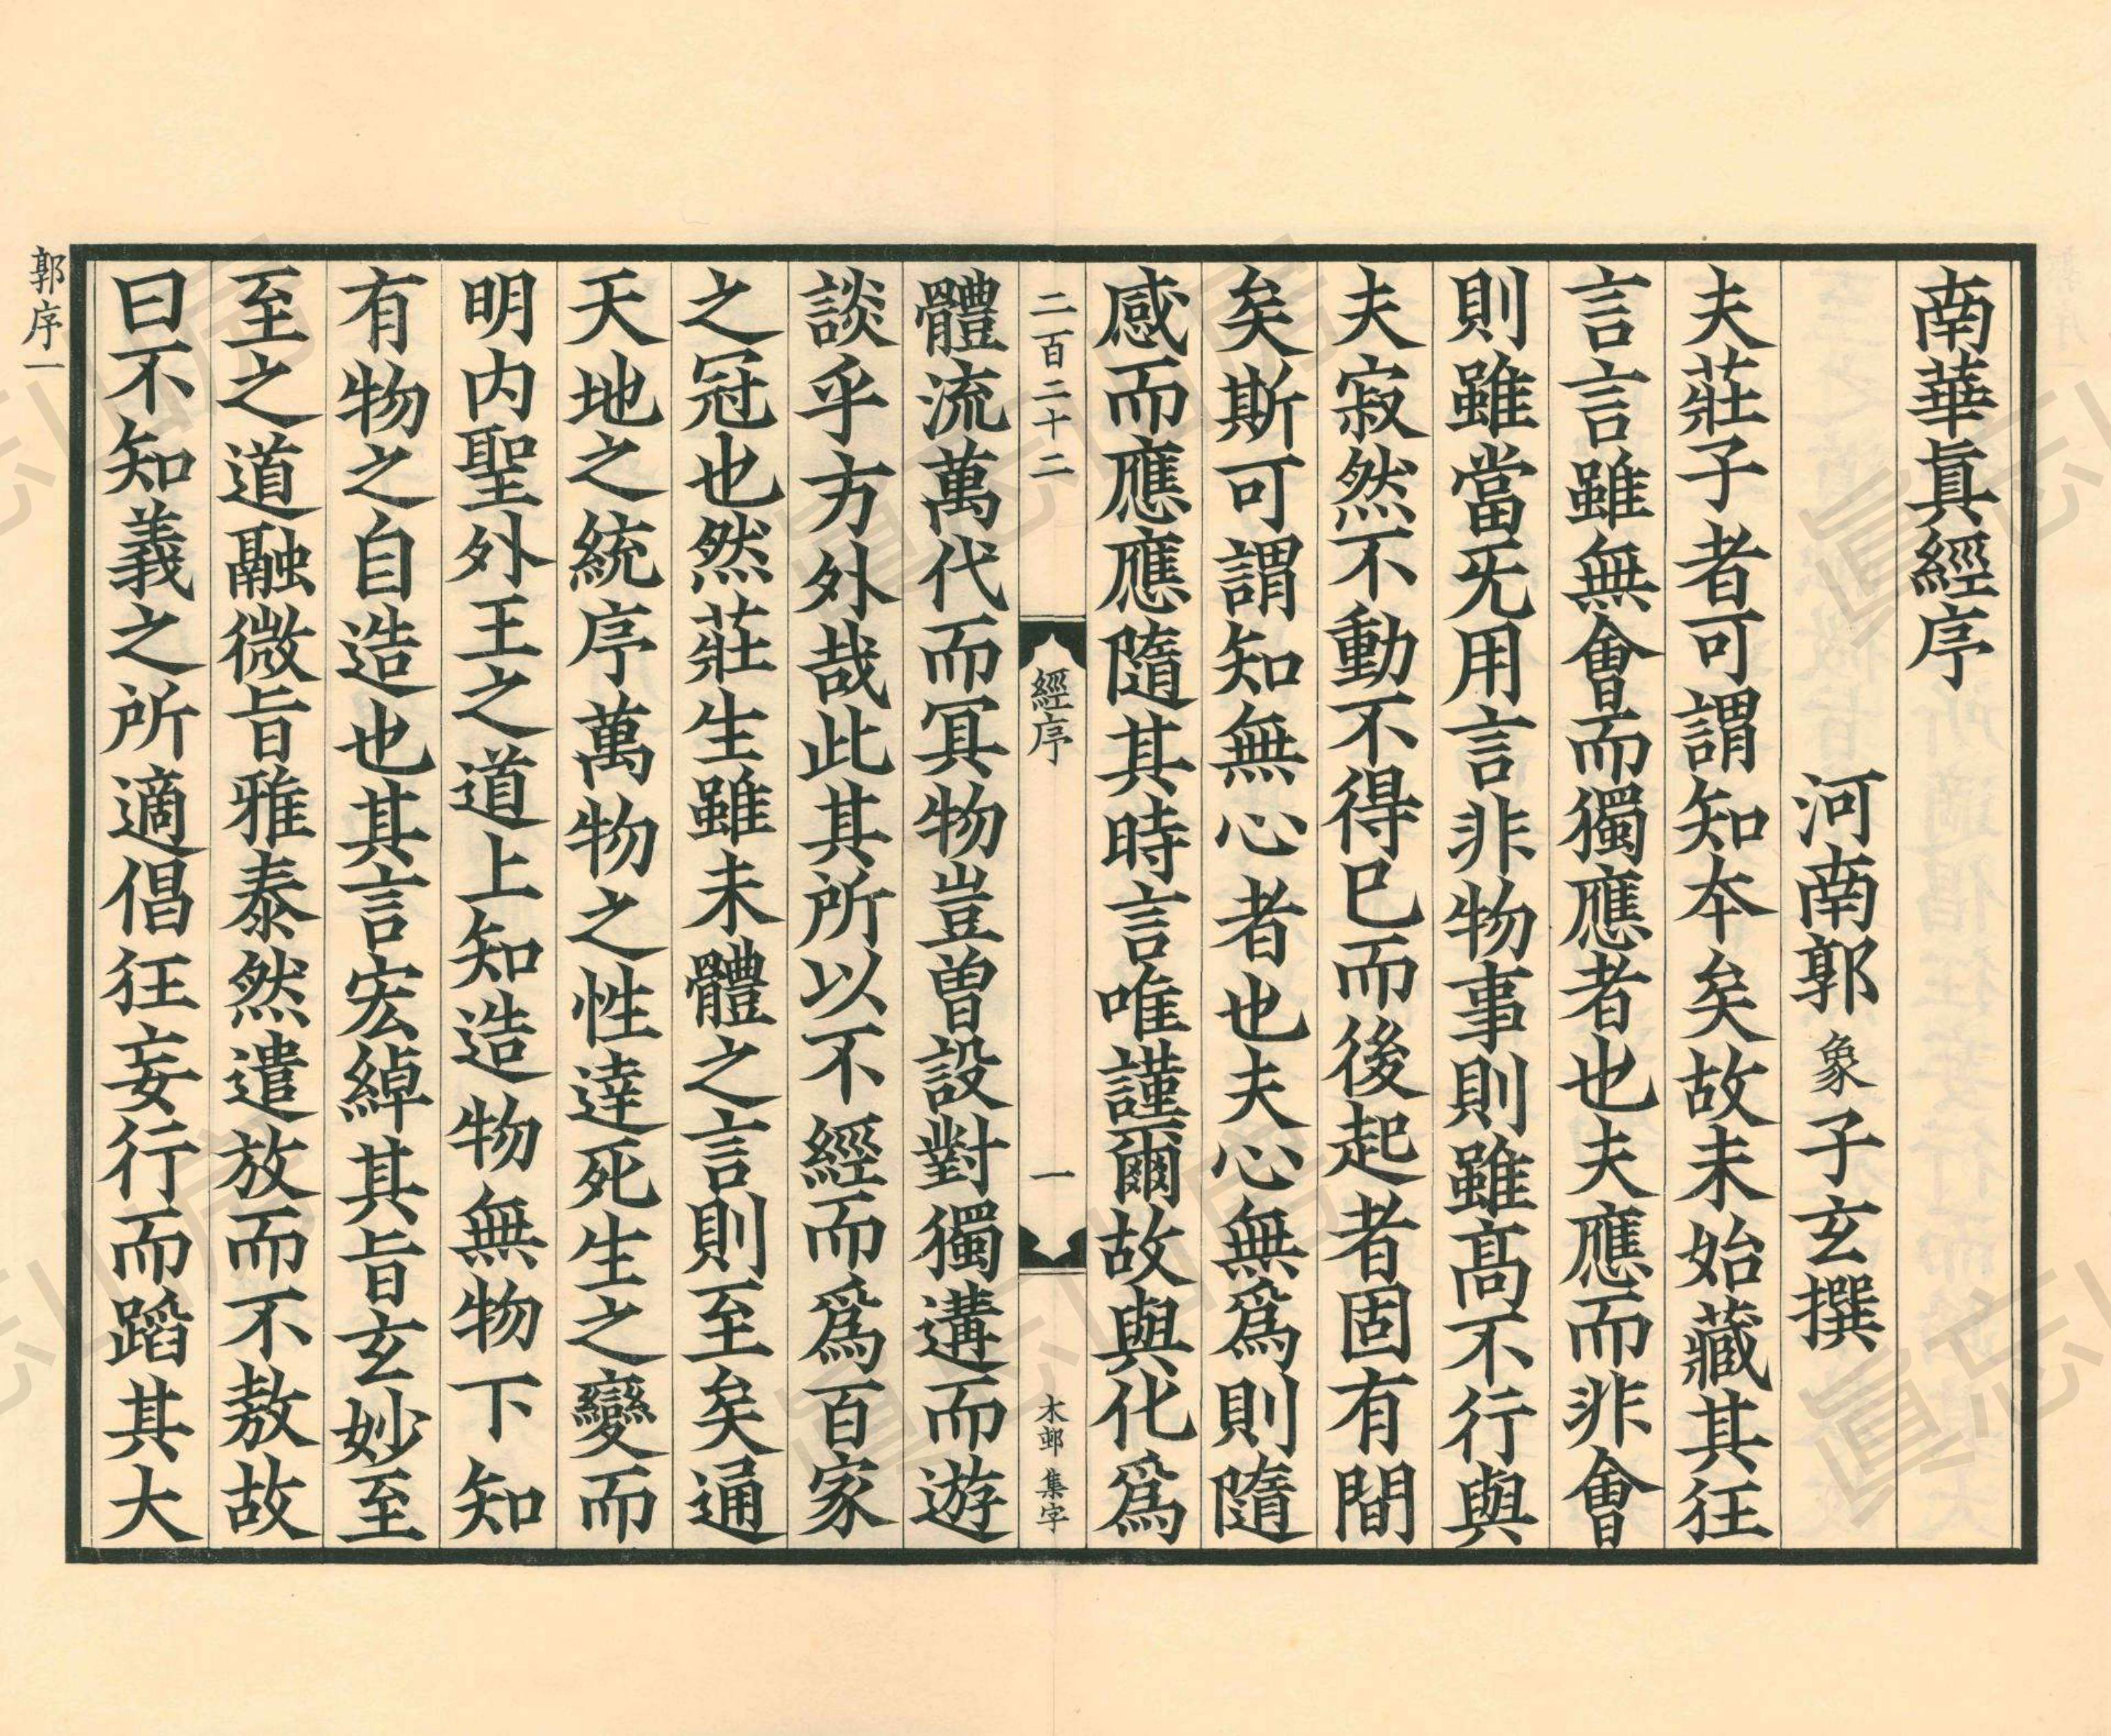 南華眞經序
河南郭象子玄撰
夫莊子者可謂知本矣故未始藏其狂
言言雖無會而獨應者也夫應而非會
則雖當无用言非物事則雖高不行與
夫寂然不動不得已而後起者固有間
矣斯可謂知無心者也夫心無爲則隨
感而應應隨其時言唯謹爾故與化爲
二百二十二
經序
一
木郵 集字
體流萬代而冥物豈曽設對獨遘而遊
談乎方外哉此其所以不經而爲百家
之冠也然莊生雖未體之言則至矣通
天地之統序萬物之性達死生之變而
明内聖外王之道上知造物無物下知
有物之自造也其言宏綽其旨玄妙至
至之道融微旨雅泰然遣放而不敖故
曰不知義之所適倡狂妄行而蹈其大
郭序一
眞志山房